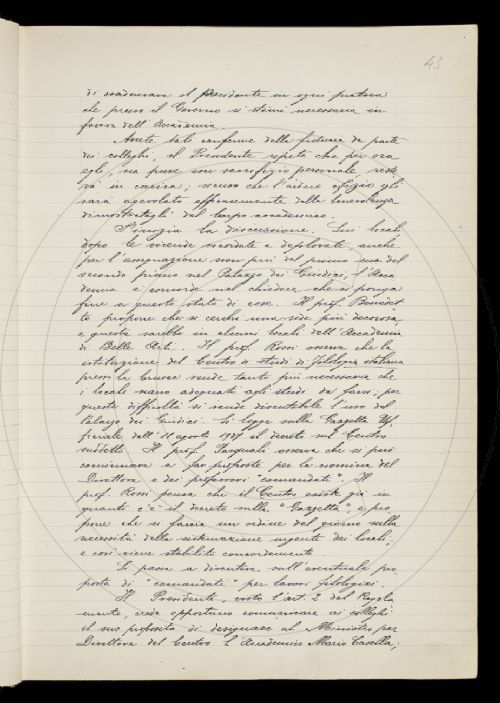 43
di coadiuvare il Presidente in ogni pratica
che presso il Governo si stimi necessaria in
favore dell'Accademia.
Avuta tale conferma della fiducia da parte
dei colleghi, il Presidente ripete che per ora
egli, sia pure con sacrifizio personale, reste
rà in carica; sicuro che l'arduo ufizio gli
sarà agevolato efficacemente dalla benevolenza
dimostratagli dal Corpo accademico.
S'inizia la discussione. Sui locali,
dopo le vicende ricordate e deplorate, anche
per l'assegnazione non più del primo ma del
secondo piano nel Palazzo dei Giudici, l'Acca
demia è concorde nel chiedere che si ponga
fine a questo stato di cose. Il prof. Benedet
to propone che si cerchi una sede più decorosa,
e questa sarebbe in alcuni locali dell'Accademia
di Belle Arti. Il prof. Rossi osserva che la
istituzione del Centro di studi di filologia italiana
presso la Crusca rende tanto più necessario che
i locali siano adeguati agli studi da farsi; per
questa difficoltà si rende discutibile l'uso del
Palazzo dei Giudici. Si legge sulla Gazzetta Uf
ficiale dell'11 agosto 1937 il decreto sul Centro
suddetto. Il prof. Pasquali osserva che si può
cominciare a far proposte per la nomina del
Direttore e dei professori "comandati". Il
prof. Rossi pensa che il Centro esiste già in
quanto c'è il decreto sulla "Gazzetta", e pro
pone che si faccia un ordine del giorno sulla
necessità della sistemazione urgente dei locali;
e così viene stabilito concordemente.
Si passa a discutere sull'eventuale pro
posta di "comandati" per lavori filologici.
Il Presidente, visto l'art. 2 del Regola
mento, crede opportuno comunicare ai colleghi
il suo proposito di designare al Ministro per
Direttore del Centro l'Accademico Mario Casella;